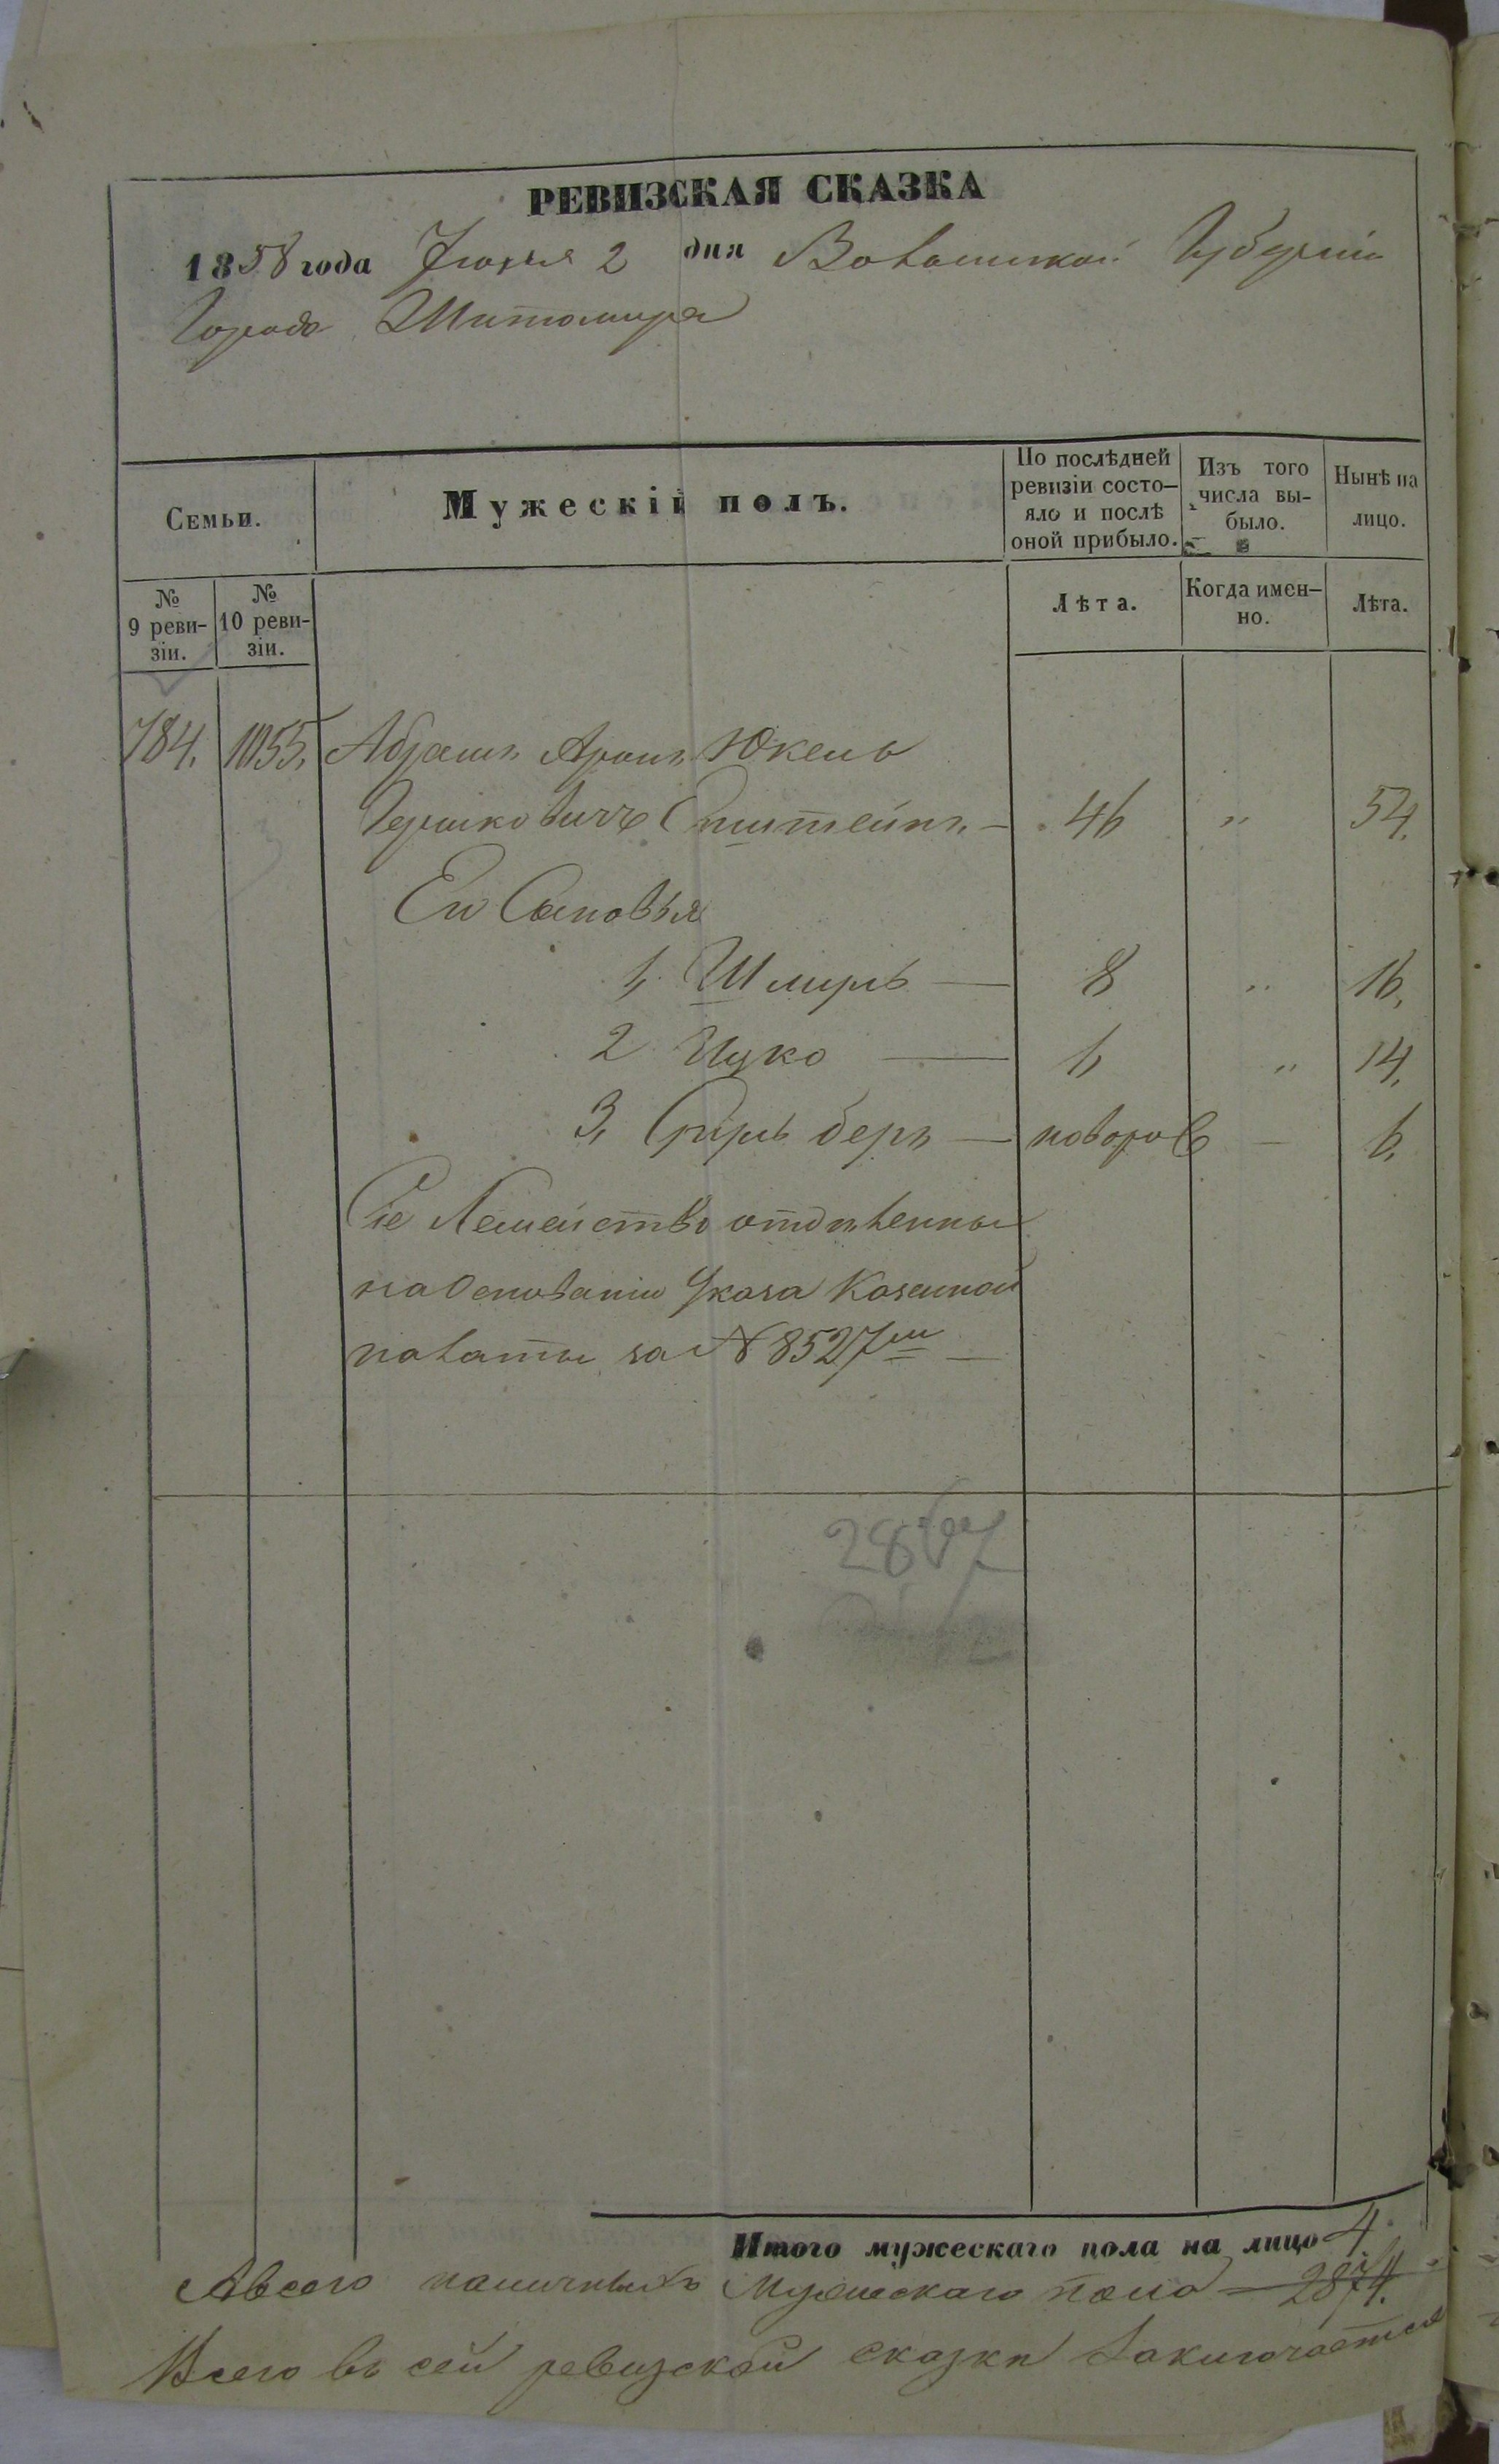 РЕВИЗСКАЯ СКАЗКА
1858 года Іюня 2 дня Волынской Губерніи
Города Житомира
Семьи.
Мужескій полъ.
По послѣдней ревизіи состо-яло и послѣ оной прибыло.
Изъ того числа вы-было.
Нынѣ на лицо.
№ 9 реви-зіи.
№ 10 реви-зіи.
Лѣта.
Когда имен-но.
Лѣта.
784. 1055. Абрамъ Аронъ Юкель
Гершковичъ Епштейнъ — 46 " 54.
Его Сыновья
1, Шмиль — 8 " 16,
2 Ицко — 6 " 14,
3, Берь — новорож — 6,
Сіе Семейство отдѣленны
на основаніи Указа Казенной
палаты за № 8527мъ —
Итого мужескаго пола на лицо 4.
А всего наличныхъ Мужескаго пола — 2874.
Всего въ сей ревизской сказки Заключается